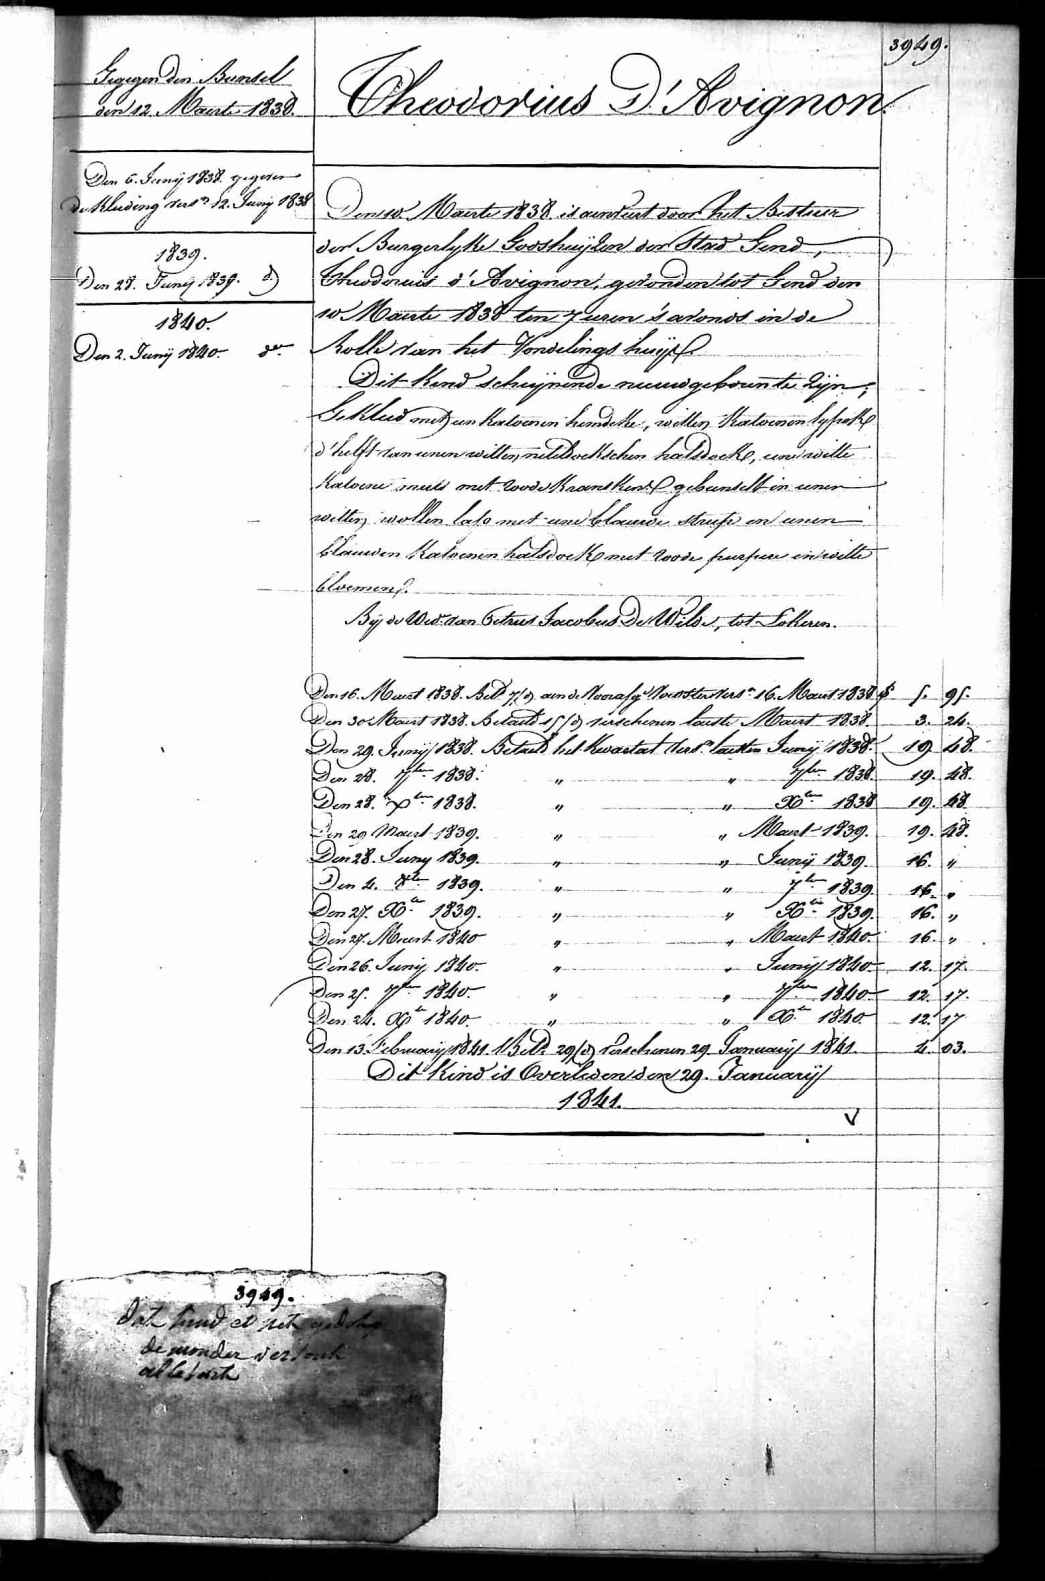 3949.
Gegegen den Bunsel
den 12. Maerte 1838.
Theodorius D'Avignon.
Den 6. Junij 1838. gegeven
de Kleeding vers.n 12. Junij 1838
1839.
Den 28. Junij 1839. d.o
1840.
Den 2. Junij 1840. d.o
Den 10. Maerte 1838. is aenveert door het Bestuer
der Burgerlyke Godshuijzen der Stad Gend,
Theodorius d'Avignon, gevonden tot Gend den
10 Maerte 1838 ten 7 uren 's avonds in de
Rolle van het Vondelings huijs.
Dit Kind schijnende nieuwgeboren te Zijn,
Gekleed met een Katoenen hemdeke, witten Katoenen
d'helft van eenen witten neteldoekschen halsdoek, eene witte
Katoene muts met roode Kranskens gebunselt in eenen
witten wollen lap met eene blauwe streep en eenen
blauwen Katoenen halsdoek met roode, purpere en witte
bloemen.
Bij de Wed.e van Petrus Jacobus De Wilde, tot Lokeren.
Den 16. Maert 1838. Bet.d 7/d aen de Voorafg.e Voedster vers.n 16. Maert 1838 f. 5. 95.
Den 30 Maert 1838. Betaeld 15/d verschenen laeste Maert 1838. 3. 24.
Den 29. Junij 1838. Betaeld het Kwartael vers.n laesten Junij 1838. 19 48.
Den 28. 7ber 1838. " " 7ber 1838 19. 48.
Den 28. Xber 1838. " " Xber 1838 19. 48
Den 29 Maert 1839. " " Maert 1839. 19. 48.
Den 28. Junij 1839. " " Junij 1839. 16. "
Den 4. 8ber 1839. " " 7ber 1839 16. "
Den 27. Xber 1839. " " Xber 1839. 16. "
Den 27. Maert 1840 " " Maert 1840. 16. "
Den 26. Junij 1840. " " Junij 1840. 12. 17.
Den 25. 7ber 1840. " " 7ber 1840. 12. 17.
Den 24. Xber 1840. " " Xber 1840 12. 17
Den 13. February 1841. Bet.d 29/d Verschenen 29. January 1841. 4. 03.
Dit Kind is Overleden den 29. Januarij
1841.
V
3949.
dat kind et